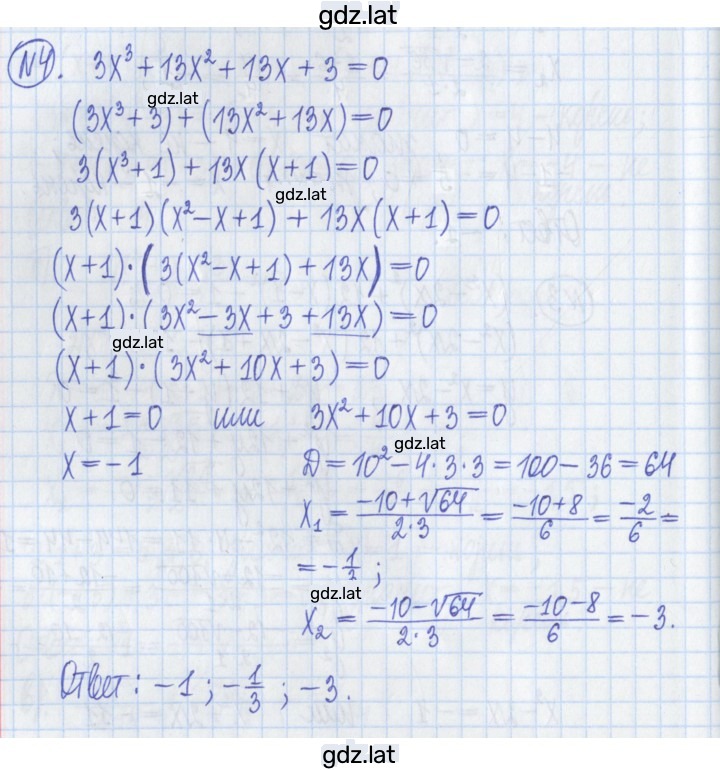 gdz.lat
N4. 3x³ + 13x² + 13x + 3 = 0
gdz.lat
(3x³ + 3) + (13x² + 13x) = 0
3(x³ + 1) + 13x(x + 1) = 0
gdz.lat
3(x + 1)(x² - x + 1) + 13x(x + 1) = 0
(x + 1) · (3(x² - x + 1) + 13x) = 0
(x + 1) · (3x² - 3x + 3 + 13x) = 0
gdz.lat
(x + 1) · (3x² + 10x + 3) = 0
x + 1 = 0 или 3x² + 10x + 3 = 0
gdz.lat
x = -1 D = 10² - 4·3·3 = 100 - 36 = 64
x₁ = (-10 + √64)/(2·3) = (-10 + 8)/6 = -2/6 =
= -1/3 ;
gdz.lat
x₂ = (-10 - √64)/(2·3) = (-10 - 8)/6 = -3.
Ответ: -1 ; -1/3 ; -3.
gdz.lat